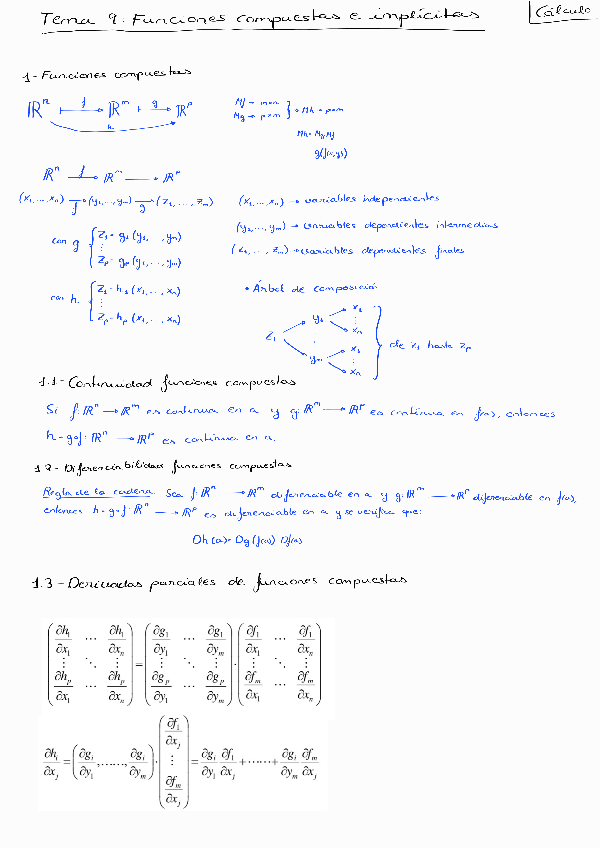 Tema 9: Funciones compuestas e implícitas
Cálculo
1- Funciones compuestas
ℝⁿ ⟼ f ⟶ ℝᵐ ⟼ g ⟶ ℝᵖ
h
Mf → m×n
Mg → p×m
Mh = Mg Mf
g(f(x,y))
ℝⁿ —f→ ℝᵐ ⟶ ℝᵖ
(x₁,...,xₙ) —f→ (y₁,...,yₘ) —g→ (z₁,...,zₘ)
(x₁,...,xₙ) → variables independientes
(y₁,...,yₘ) → variables dependientes intermedias
(z₁,...,zₘ) → variables dependientes finales
con g { z₁ = g₁(y₁, , yₘ)
⋮
zₚ = gₚ(y₁,...,yₘ)
con h { z₁ = h₁(x₁,...,xₙ)
⋮
zₚ = hₚ(x₁,...,xₙ)
• Árbol de composición
z₁
y₁
x₁
⋮
xₙ
yₘ
x₁
⋮
xₙ
} de z₁ hasta zₚ
1.1- Continuidad funciones compuestas
Si f: ℝⁿ ⟶ ℝᵐ es continua en a y g: ℝᵐ ⟶ ℝᵖ es continua en f(a), entonces
h = g∘f: ℝⁿ ⟶ ℝᵖ es continua en a.
1.2- Diferenciabilidad funciones compuestas
Regla de la cadena: Sea f: ℝⁿ ⟶ ℝᵐ diferenciable en a y g: ℝᵐ ⟶ ℝᵖ diferenciable en f(a),
entonces h = g∘f: ℝⁿ ⟶ ℝᵖ es diferenciable en a y se verifica que:
Dh(a) = Dg(f(a)) Df(a)
1.3- Derivadas parciales de funciones compuestas
(∂h₁/∂x₁ ⋯ ∂h₁/∂xₙ ; ⋮ ⋱ ⋮ ; ∂hₚ/∂x₁ ⋯ ∂hₚ/∂xₙ) = (∂g₁/∂y₁ ⋯ ∂g₁/∂yₘ ; ⋮ ⋱ ⋮ ; ∂gₚ/∂y₁ ⋯ ∂gₚ/∂yₘ) · (∂f₁/∂x₁ ⋯ ∂f₁/∂xₙ ; ⋮ ⋱ ⋮ ; ∂fₘ/∂x₁ ⋯ ∂fₘ/∂xₙ)
∂hᵢ/∂xⱼ = (∂gᵢ/∂y₁,......,∂gᵢ/∂yₘ) · (∂f₁/∂xⱼ ; ⋮ ; ∂fₘ/∂xⱼ) = ∂gᵢ/∂y₁ ∂f₁/∂xⱼ + ⋯⋯ + ∂gᵢ/∂yₘ ∂fₘ/∂xⱼ